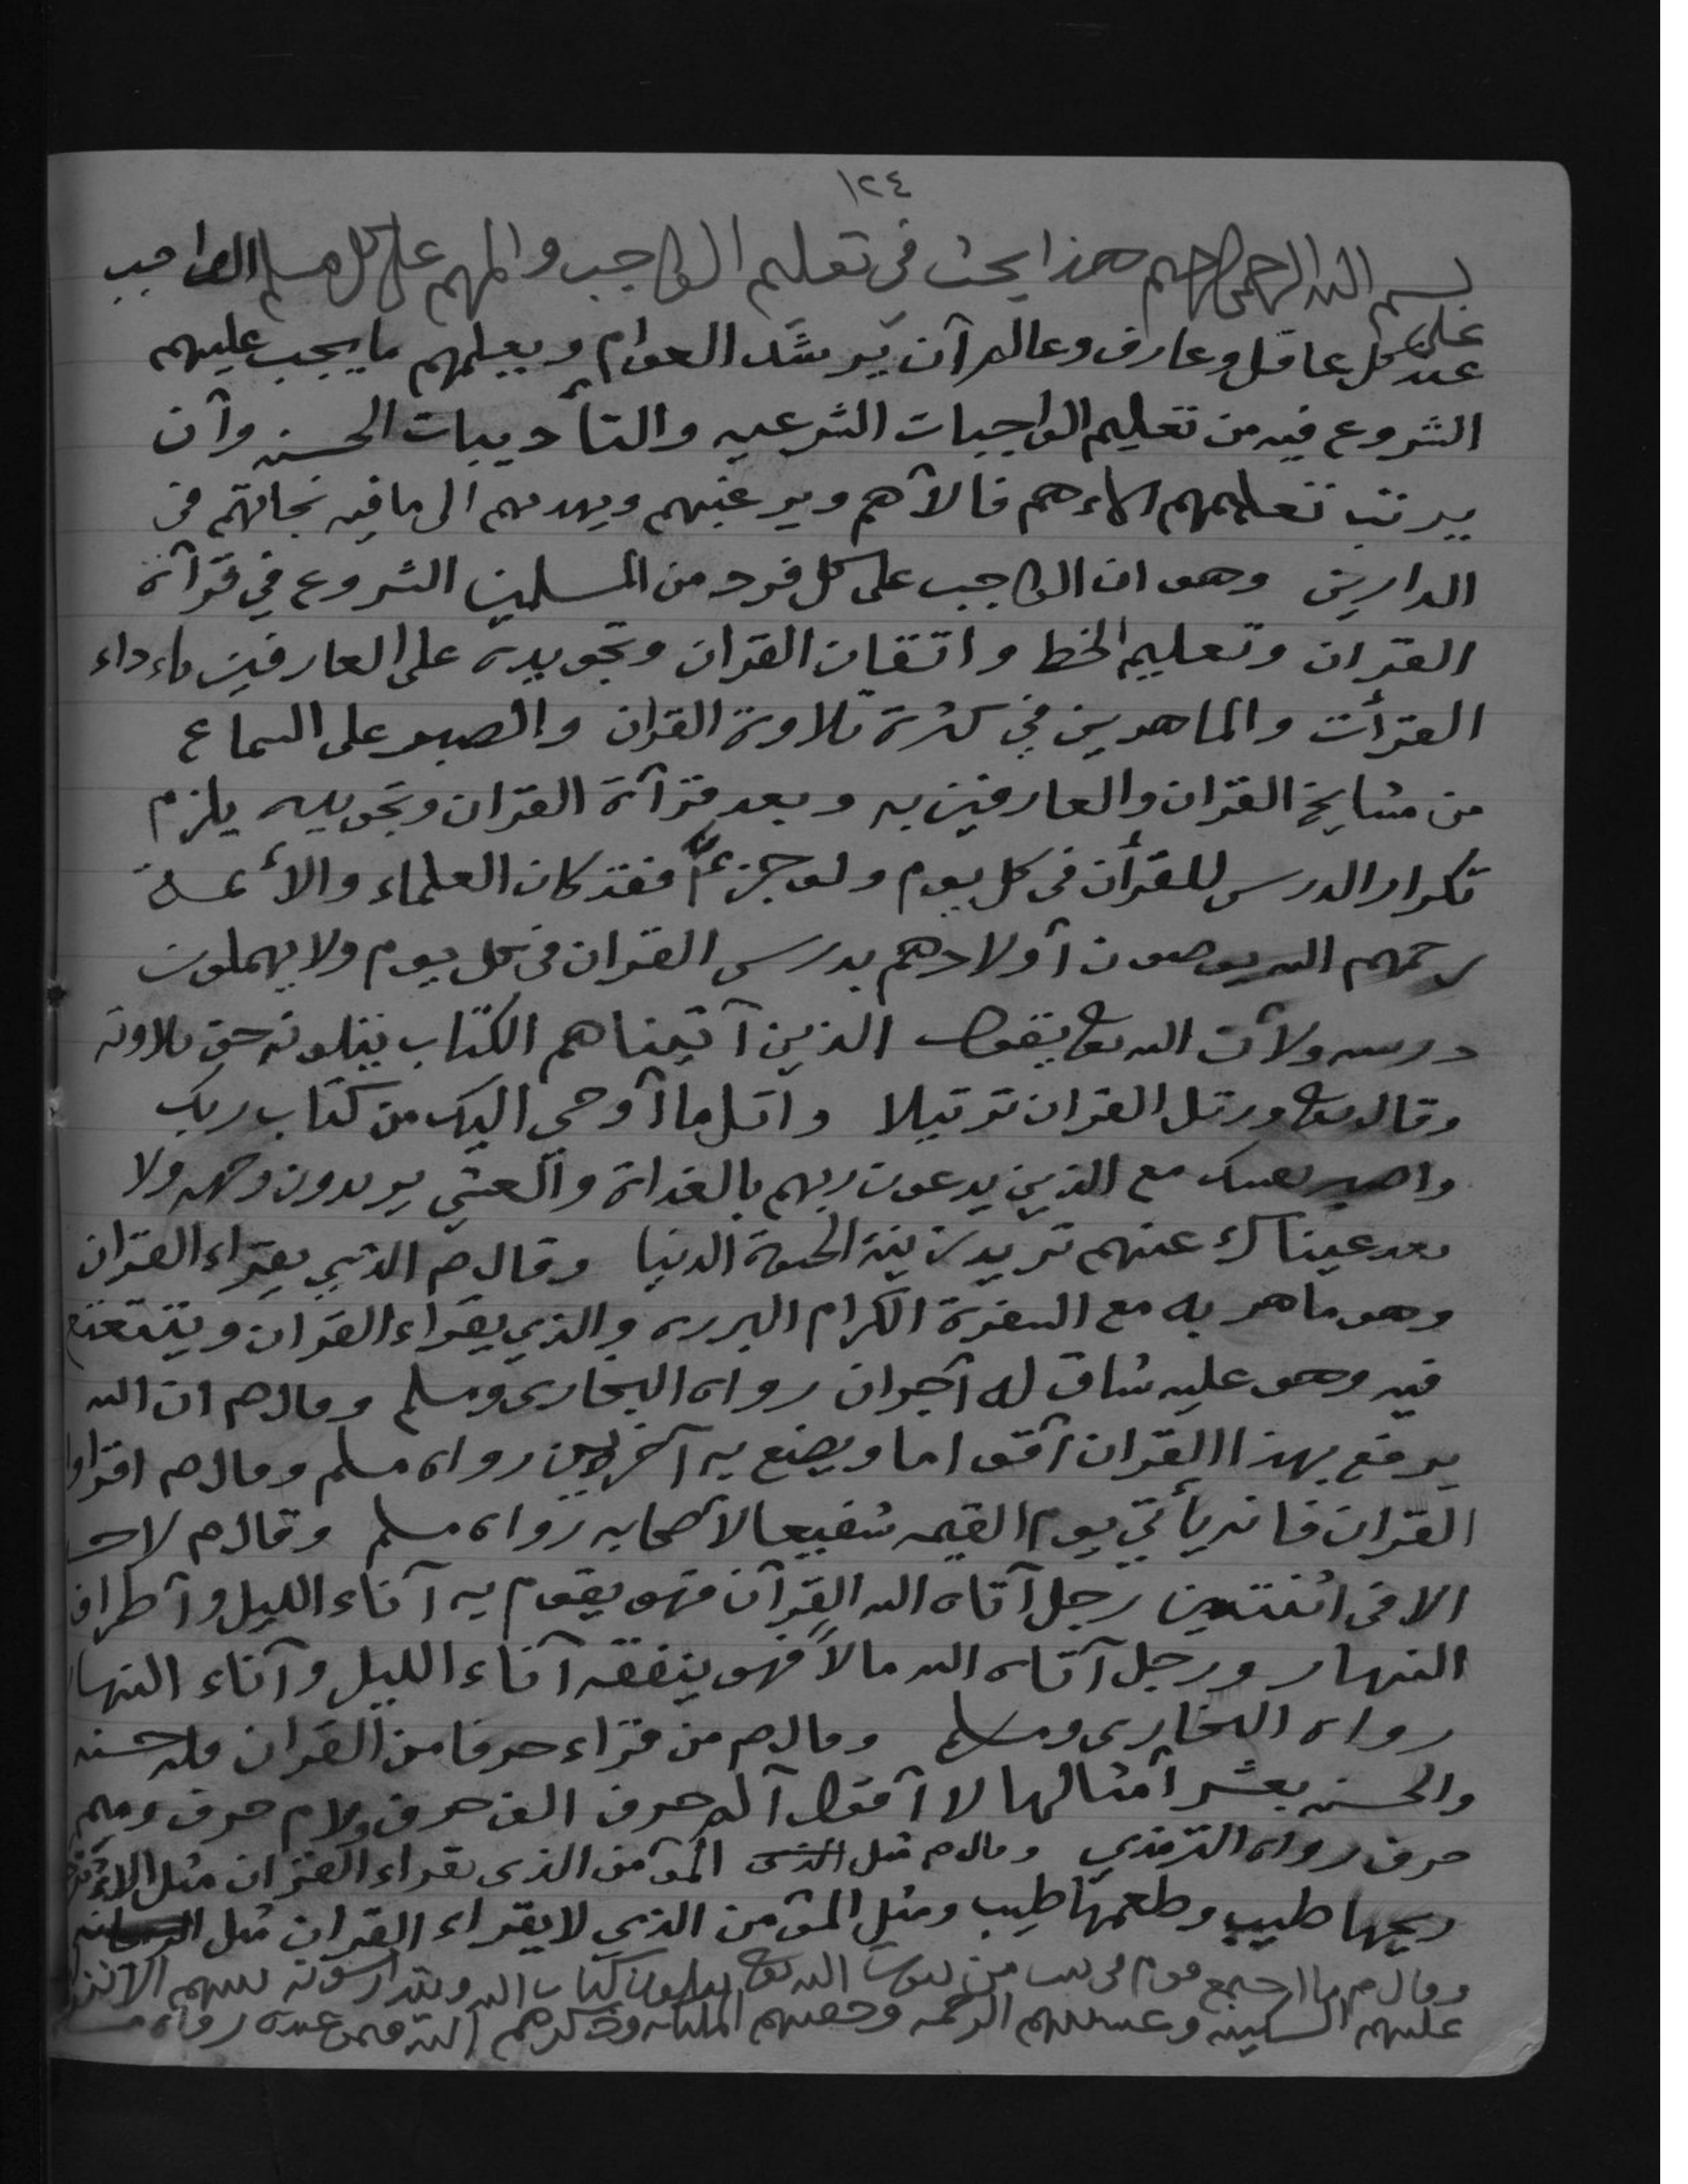 ١٢٤
بسم الله الرحمن الرحيم هذا بحث في تعليم الواجب والمهم على كل مسلم الواجب
على
عند كل عاقل وعارف وعالم آن يرشد العوام ويعلمهم ما يجب عليهم
الشروع فيه من تعليم الواجبات الشرعيه والتأديبات الحسنه وآن
يرتب تعليمهم الاءهم فالآهم ويرغبهم ويهديهم الى ما فيه نجاتهم في
الدارين وهو ان الواجب على كل فرد من المسلمين الشروع في قرآة
القران وتعليم الخط واتقان القران وتجويده على العارفين باءداء
القرأت والماهرين في كثرة تلاوة القران والصبر على السماع
من مشايخ القران والعارفين به وبعد قرآة القران وتجويده يلزم
تكرار الدرس للقرأن في كل يوم ولو جزءاً فقد كان العلماء والأئمة
رحمهم الله يوصون آولادهم بدرس القران في كل يوم ولا يهملون
درسه ولآن الله تعالى يقول الذين آتيناهم الكتاب يتلونه حق تلاوته
وقال تعالى ورتل القران ترتيلا واتل ما آوحي اليك من كتاب ربك
واصبر نفسك مع الذين يدعون ربهم بالغداة والعشي يريدون وجهه ولا
تعد عيناك عنهم تريد زينة الحيوة الدنيا وقال صم الذي يقراء القران
وهو ماهر به مع السفرة الكرام البرره والذي يقراء القران ويتتعتع
فيه وهو عليه شاق له آجران رواه البخاري ومسلم وقال صم ان الله
يرفع بهذا القران آقواما ويضع به آخرين رواه مسلم وقال صم اقراوا
القران فانه يأتي يوم القيمه شفيعا لآصحابه رواه مسلم وقال صم لا حسد
الا في اثنتين رجل آتاه الله القرآن فهو يقوم به آناء الليل وآطراف
النهار ورجل آتاه الله مالاً فهو ينفقه آناء الليل وآناء النهار
رواه البخاري ومسلم وقال صم من قراء حرفا من القران فله حسنه
والحسنه بعشر آمثالها لا آقول آلم حرف الف حرف ولام حرف وميم
حرف رواه الترمذي وقال صم مثل الذي المؤمن الذي يقراء القران مثل الاءترجه
ريحها طيب وطعمها طيب ومثل المؤمن الذي لا يقراء القران مثل
وقال صم ما اجتمع قوم في بيت من بيوت الله تعالى يتلون كتاب الله ويتدارسونه بينهم الا نزلت
عليهم السكينه وغشيتهم الرحمه وحفتهم الملئكه وذكرهم الله فيمن عنده رواه مسلم